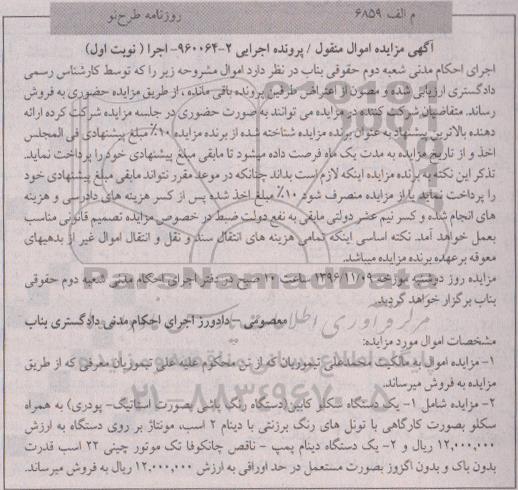 م الف ۶۸۵۹
روزنامه طرح‌نو
آگهی مزایده اموال منقول / پرونده اجرایی ۲-۹۶۰۰۶۴- اجرا ( نوبت اول)
اجرای احکام مدنی شعبه دوم حقوقی بناب در نظر دارد اموال مشروحه زیر را که توسط کارشناس رسمی
دادگستری ارزیابی شده و مصون از اعتراض طرفین پرونده باقی مانده ، از طریق مزایده حضوری به فروش
رساند. متقاضیان شرکت کننده در مزایده می توانند به صورت حضوری در جلسه مزایده شرکت کرده ارائه
دهنده بالاترین پیشنهاد به عنوان برنده مزایده شناخته شده از برنده مزایده ۱۰٪ مبلغ پیشنهادی فی المجلس
اخذ و از تاریخ مزایده به مدت یک ماه فرصت داده میشود تا مابقی مبلغ پیشنهادی خود را پرداخت نماید.
تذکر این نکته به برنده مزایده اینکه لازم است بداند چنانکه در موعد مقرر نتواند مابقی مبلغ پیشنهادی خود
را پرداخت نماید یا از مزایده منصرف شود ۱۰٪ مبلغ اخذ شده پس از کسر هزینه های دادرسی و هزینه
های انجام شده و کسر نیم عشر دولتی مابقی به نفع دولت ضبط در خصوص مزایده تصمیم قانونی مناسب
بعمل خواهد آمد. نکته اساسی اینکه تمامی هزینه های انتقال سند و نقل و انتقال اموال غیر از بدهیهای
معوقه برعهده برنده مزایده میباشد.
مزایده روز دوشنبه مورخه ۱۳۹۶/۱۱/۰۹ ساعت ۱۰ صبح در دفتر اجرای احکام مدنی شعبه دوم حقوقی
بناب برگزار خواهد گردید.
معصومی – دادورز اجرای احکام مدنی دادگستری بناب
مشخصات اموال مورد مزایده:
۱- مزایده اموال به مالکیت محمدعلی تیموریان که از تن محکوم علیه علی تیموریان معرفی که از طریق
مزایده به فروش میرساند.
۲- مزایده شامل ۱- یک دستگاه سکلو کابین(دستگاه رنگ پاشی بصورت استاتیک- پودری) به همراه
سکلو بصورت کارگاهی با تونل های رنگ برزنتی با دینام ۲ اسب، مونتاژ بر روی دستگاه به ارزش
۱۲,۰۰۰,۰۰۰ ریال و ۲- یک دستگاه دینام پمپ - ناقص چانکوفا تک موتور چینی ۲۲ اسب قدرت
بدون باک و بدون اگزوز بصورت مستعمل در حد اوراقی به ارزش ۱۲,۰۰۰,۰۰۰ ریال به فروش میرساند.
ParsNamadData
۰۲۱-۸۸۳۴۹۶۷۰-۵